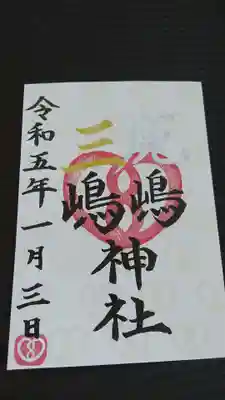 三嶋
嶋神社
令和五年一月三日